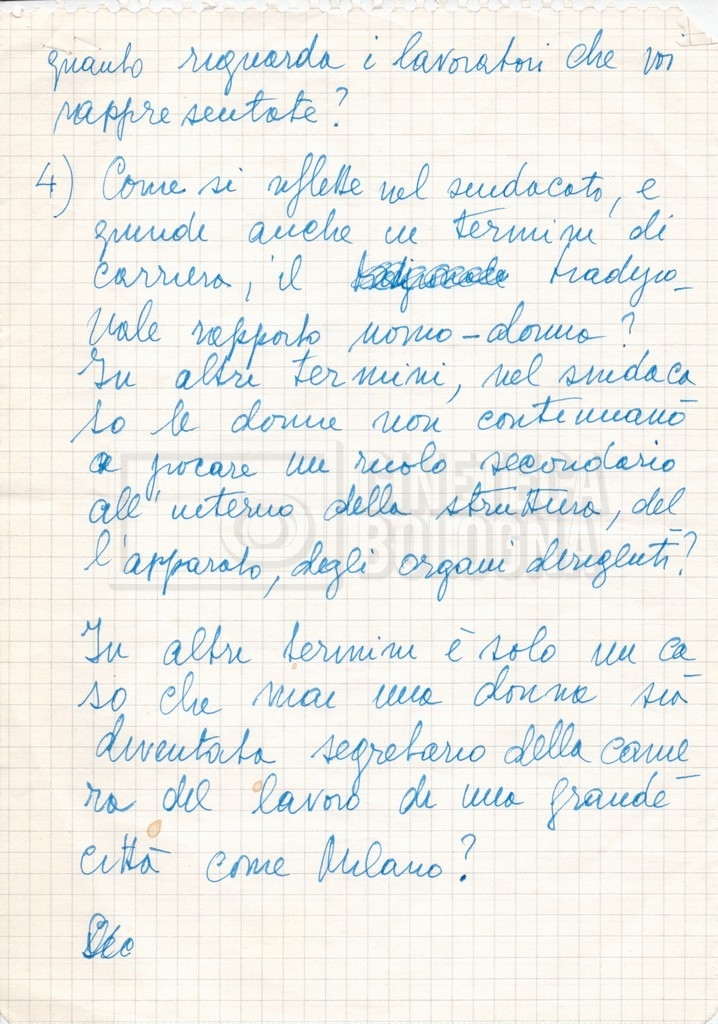 quanto riguarda i lavoratori che voi
rappresentate?
4) Come si riflette nel sindacato, e
quindi anche in termini di
carriera, il tradizio-
nale rapporto uomo-donna?
In altri termini, nel sindaca
to le donne non continuano
a giocare un ruolo secondario
all'interno della struttura, del
l'apparato, degli organi dirigenti?
In altri termini è solo un ca
so che mai una donna sia
diventata segretario della came
ra del lavoro di una grande
città come Milano?
CINETECA
BOLOGNA